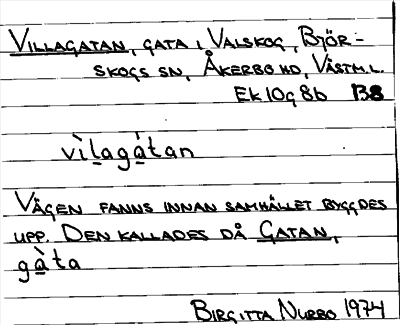 VILLAGATAN, GATA I VALSKOG, BJÖR-
SKOGS SN, ÅKERBO HD, VÄSTM.L.
EK 10g 8b BB
vìlagàtan
VÄGEN FANNS INNAN SAMHÄLLET BYGGDES
UPP. DEN KALLADES DÅ GATAN,
gàta
BIRGITTA NURBO 1974